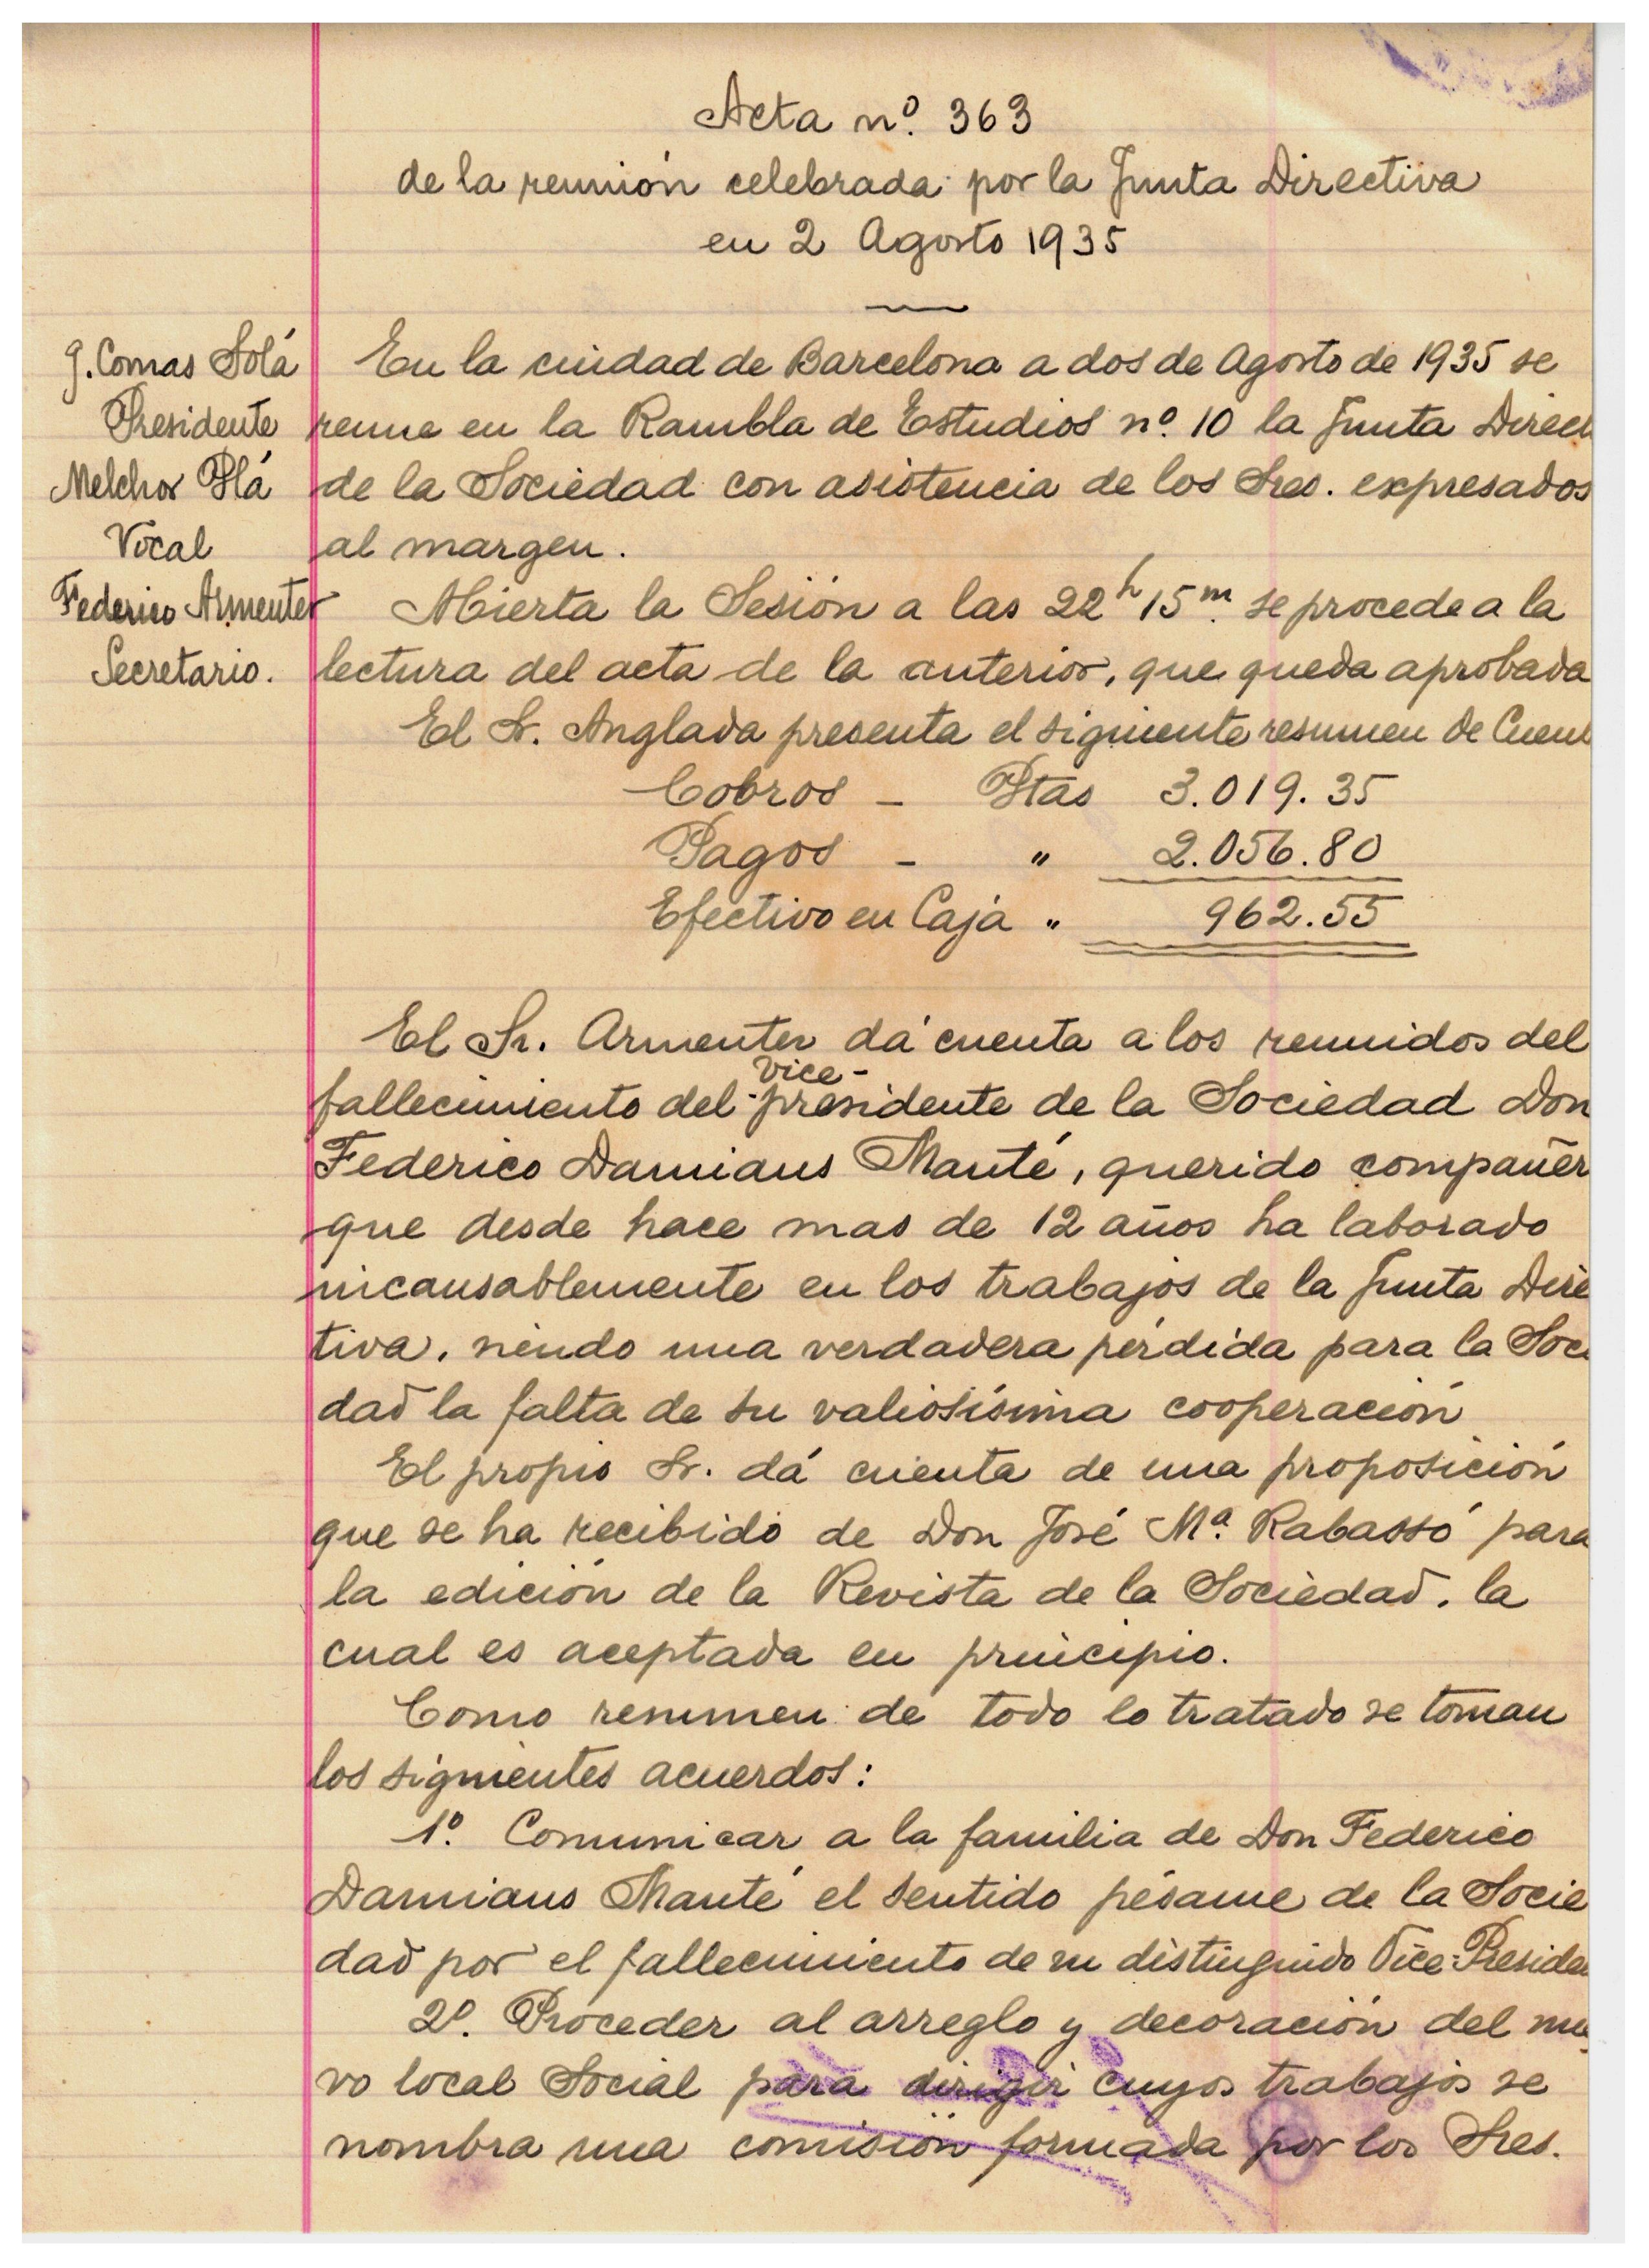 Acta nº. 363
de la reunión celebrada por la Junta Directiva
en 2 Agosto 1935
J. Comas Solá
Presidente
Melchor Plá
Vocal
Federico Armenter
Secretario.
En la ciudad de Barcelona a dos de Agosto de 1935 se
reune en la Rambla de Estudios nº. 10 la Junta Direc
de la Sociedad con asistencia de los Sres. expresados
al margen.
Abierta la Sesión a las 22h 15m. se procede a la
lectura del acta de la anterior, que queda aprobada
El Sr. Anglada presenta el siguiente resumen de Cuent
Cobros - Ptas 3.019.35
Pagos - " 2.056.80
Efectivo en Caja " 962.55
El Sr. Armenter dá cuenta a los reunidos del
fallecimiento del Vice-presidente de la Sociedad Don
Federico Damians Manté, querido compañer
que desde hace mas de 12 años ha laborado
incansablemente en los trabajos de la Junta Direc
tiva, siendo una verdadera pérdida para la Soci
dad la falta de su valiosísima cooperación
El propio Sr. dá cuenta de una proposición
que se ha recibido de Don José Mª. Rabassó para
la edición de la Revista de la Sociedad, la
cual es aceptada en principio.
Como resumen de todo lo tratado se toman
los siguientes acuerdos:
1º. Comunicar a la familia de Don Federico
Damians Manté el sentido pésame de la Socie
dad por el fallecimiento de su distinguido Vice-Presiden
2º. Proceder al arreglo y decoración del nue
vo local Social para dirigir cuyos trabajos se
nombra una comisión formada por los Sres.